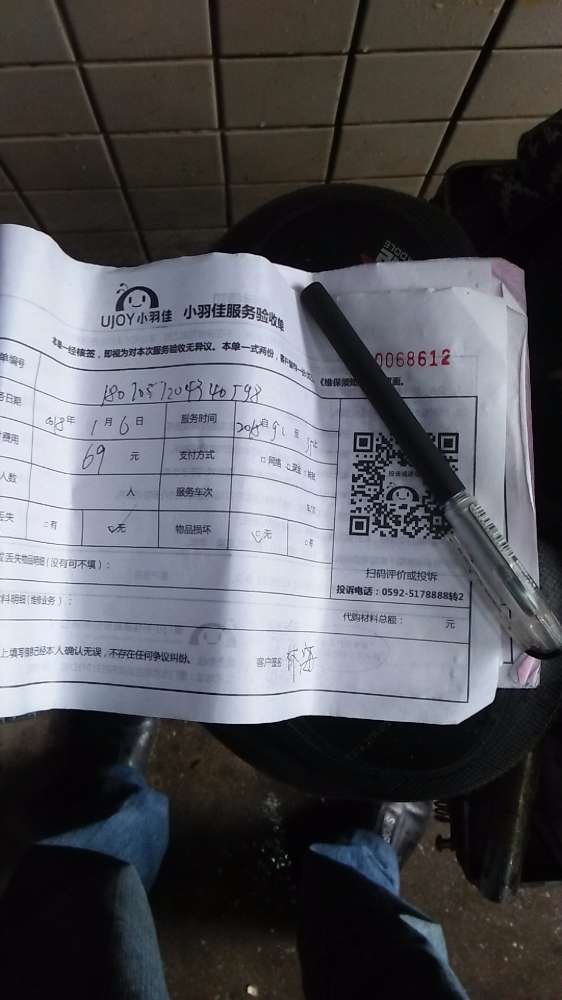 UJOY小羽佳 小羽佳服务验收单
本单一经核签，即视为对本次服务验收无异议。本单一式两份，客户留存一
《维保须知
0068612
单编号
务日期 2018年 1月6日 服务时间
费用 69 元 支付方式 □网络 □现金
人数 人 服务车次
丢失 □有 ☑无 物品损坏 ☑无 □有
扫码评价或投诉
投诉电话：0592-5178888转2
丢失物品明细（没有可不填）：
材料明细（维修业务）： 代购材料总额： 元
上填写登记经本人确认无误，不存在任何争议纠纷。 客户签名